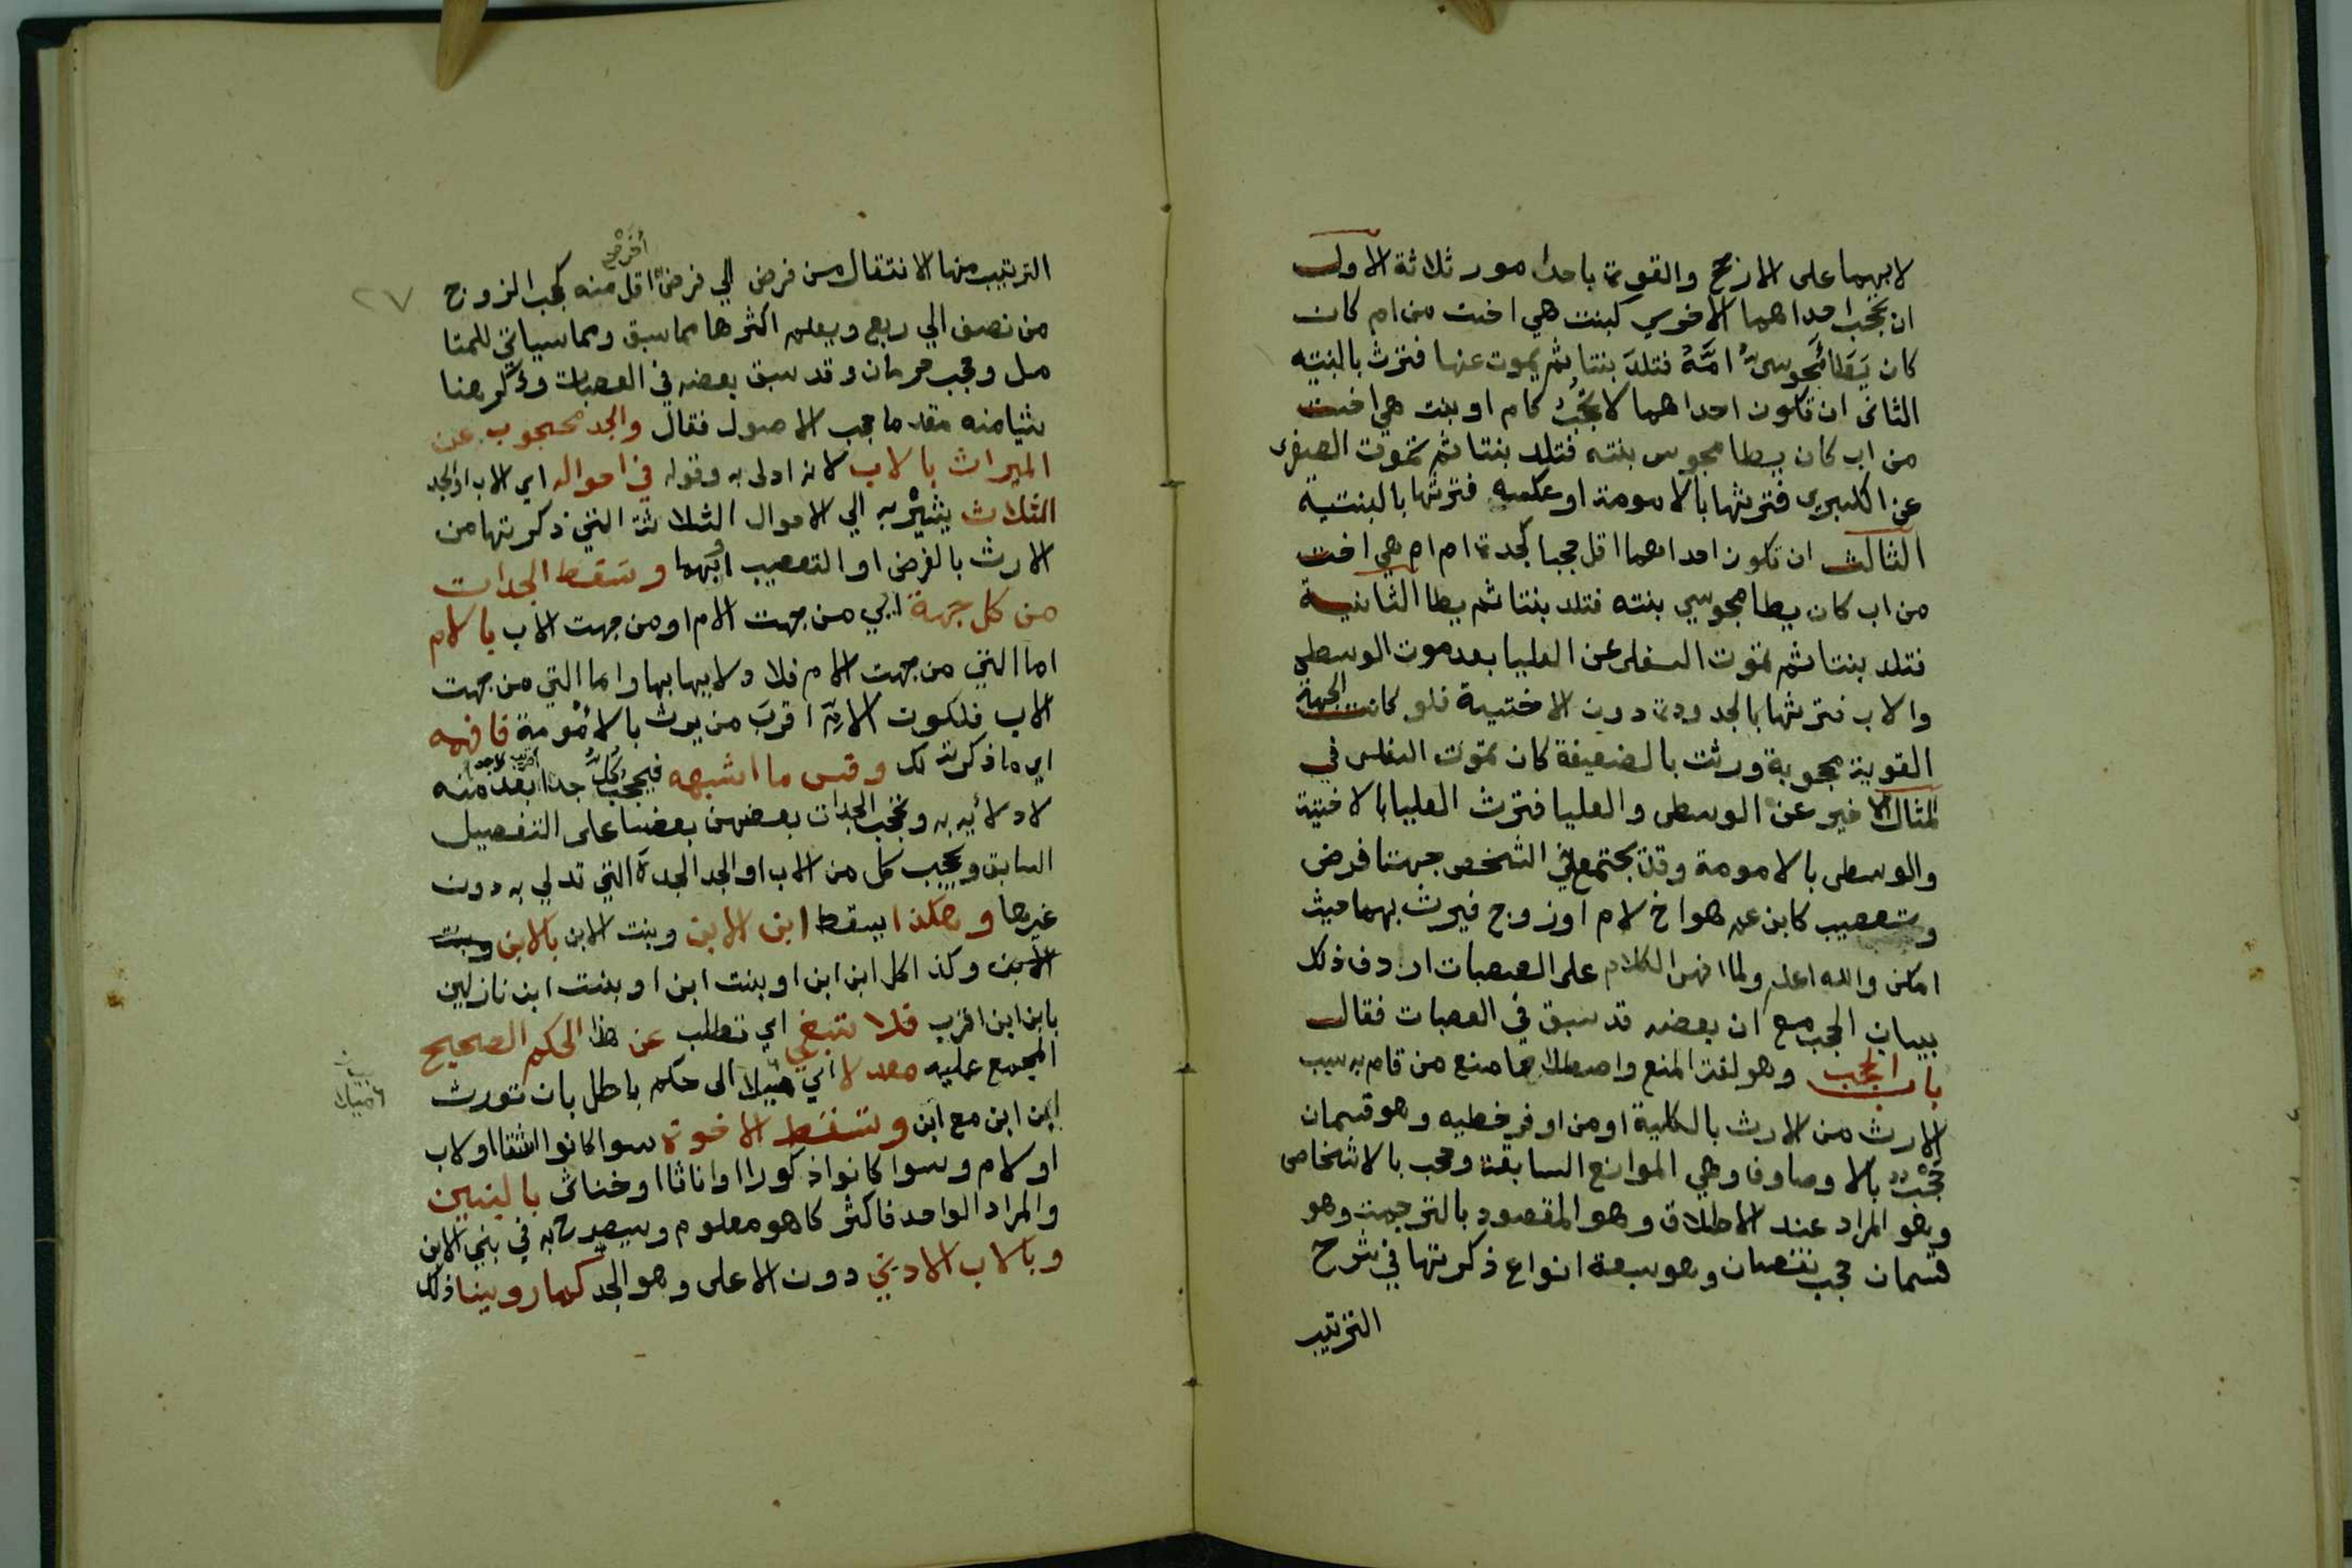 لابهما على الارجح والقوة باحد امور ثلاثة الاول
ان تحجب احداهما الاخري كبنت هي اخت من ام كان
كان يَطَا مجوسيٌ امَّهُ فتلدَ بنتا ثم يموت عنها فترث بالبنتيه
الثانى ان تكون احداهما لا تحجبُ كام او بنت هي اخت
من اب كان يطا مجوس بنته فتلد بنتا ثم تموت الصغرى
عن الكبرى فترثها بالامومة او عكسه فترثها بالبنتية
الثالث ان تكون احداهما اقل حجبا كجدة ام ام هي اخت
من اب كان يطا مجوسي بنته فتلد بنتا ثم يطا الثانية
فتلد بنتا ثم تموت السفلى عن العليا بعد موت الوسطى
والاب فترثها بالجدودة دون الاختية فلو كانت الجهة
القوية محجوبة ورثت بالضعيفة كان تموت السفلى في
المثال الاخير عن الوسطى والعليا فترث العليا بالاختية
والوسطى بالامومة وقد يجتمع في الشخص جهتا فرض
وتعصيب كابن عم هو اخ لام او زوج فيرث بهما حيث
امكن والله اعلم ولما انهى الكلام على العصبات اردف ذلك
ببيان الحجب مع ان بعضه قد سبق في العصبات فقال
باب الحجب وهو لغة المنع واصطلاحا منع من قام به سبب
الارث من الارث بالكلية او من اوفر حظيه وهو قسمان
حجب بالاوصاف وهي الموانع السابقة وحجب بالاشخاص
وهو المراد عند الاطلاق وهو المقصود بالترجمة وهو
قسمان حجب نقصان وهو سبعة انواع ذكرتها في شرح
الترتيب
٢٧
الترتيب منها الانتقال من فرض الي فرض اخر اقل منه كحجب الزوج
من نصف الي ربع ويعلم اكثرها مما سبق ومما سياتي للمتا
مل وحجب حرمان وقد سبق بعضه في العصبات وذكر هنا
شيا منه مقدما حجب الاصول فقال والجد محجوب عن
الميراث بالاب لانه ادلى به وقوله في احواله اي الاب او الجد
الثلاث يشير به الي الاحوال الثلاثة التي ذكرتها من
الارث بالفرض او التعصيب او بهما وتسقط الجدات
من كل جهة اي من جهت الام او من جهت الاب بالام
اما التي من جهت الام فلادلايها بها واما التي من جهت
الاب فلكون الام اقرب من يرث بالامُومة فافهمه
اي ما ذكرته لك وقس ما اشبهه فيحجب كلُّ جد ابعد منه
لادلائه به وتحجب الجدات بعضهن بعضا على التفصيل
السابق ويحجب كل من الاب او الجد الجدة التي تدلي به دون
غيرها وهكذا يسقط ابن الابن وبنت الابن بالابن وبنت
الابن وكذا كل ابن ابن او بنت ابن او بنت ابن نازلين
بابن ابن اقرب فلا تبغي اي تطلب عن هذا الحكم الصحيح
المجمع عليه معدلا اي ميلا الى حكم باطل بان تورث
ابن ابن مع ابن وتسقط الاخوة سوا كانوا اشقا او لاب
او لام وسوا كانوا ذكورا او اناثا او خناثى بالبنين
والمراد الواحد فاكثر كما هو معلوم وسيصرح به في بني الابن
وبالاب الادني دون الاعلى وهو الجد كما روينا ذلك